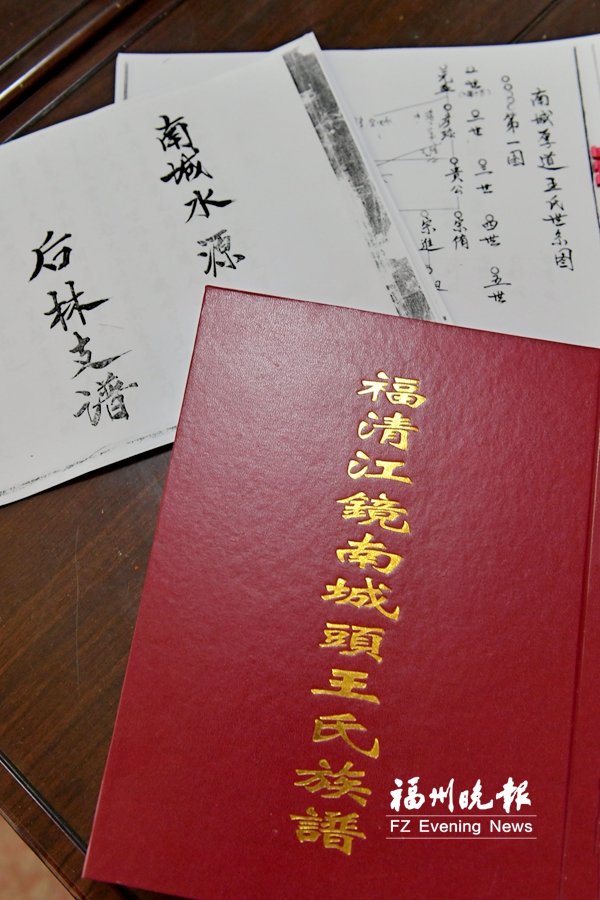 南城水源
后林支谱
南城厚道王氏世系图
第一图
一世 二世 三世 四世 五世
贵公
宗脩
宗進
福清江鏡南城頭王氏族譜
福州晚報
FZ Evening News